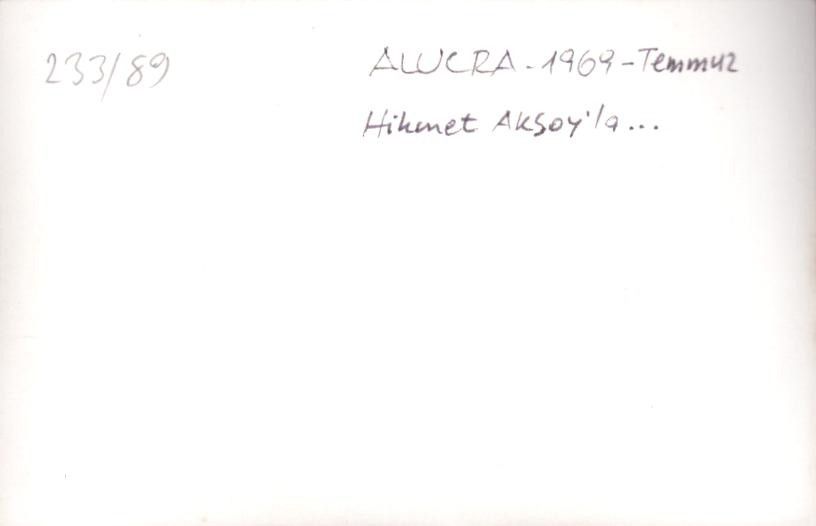 233/89
ALUCRA - 1969 - Temmuz
Hikmet Aksoy'la...